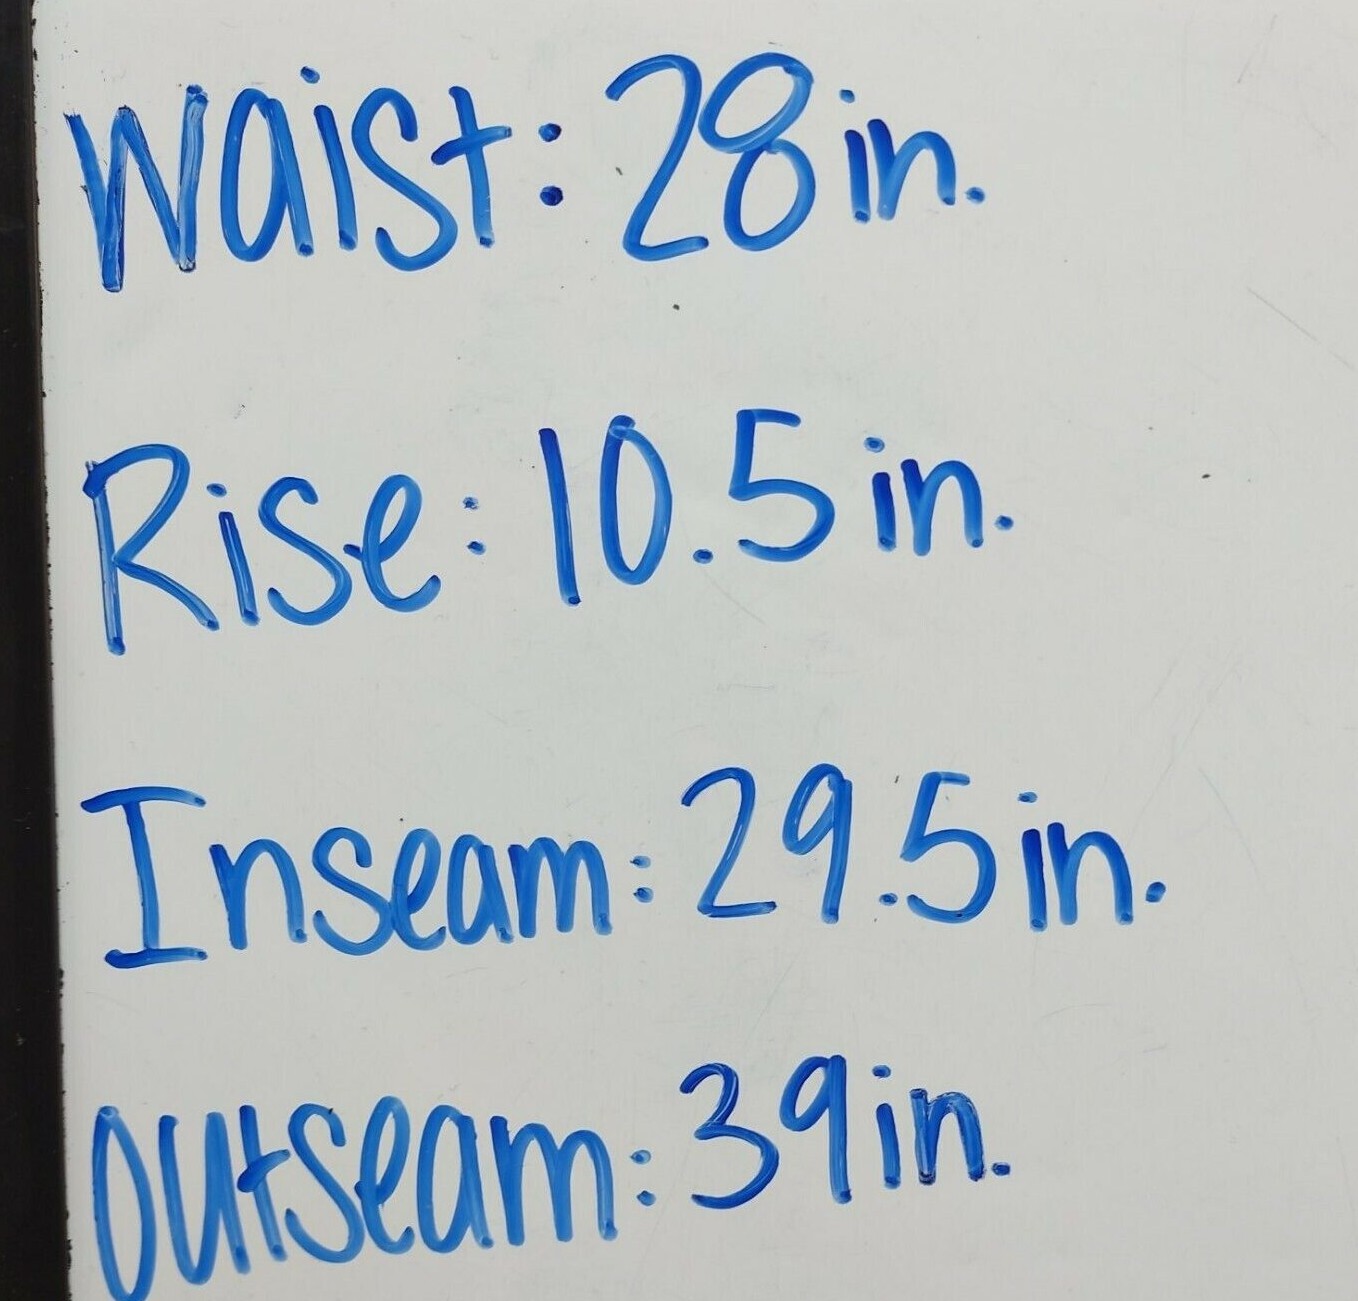 Waist: 28 in.
Rise: 10.5 in.
Inseam: 29.5 in.
Outseam: 39 in.